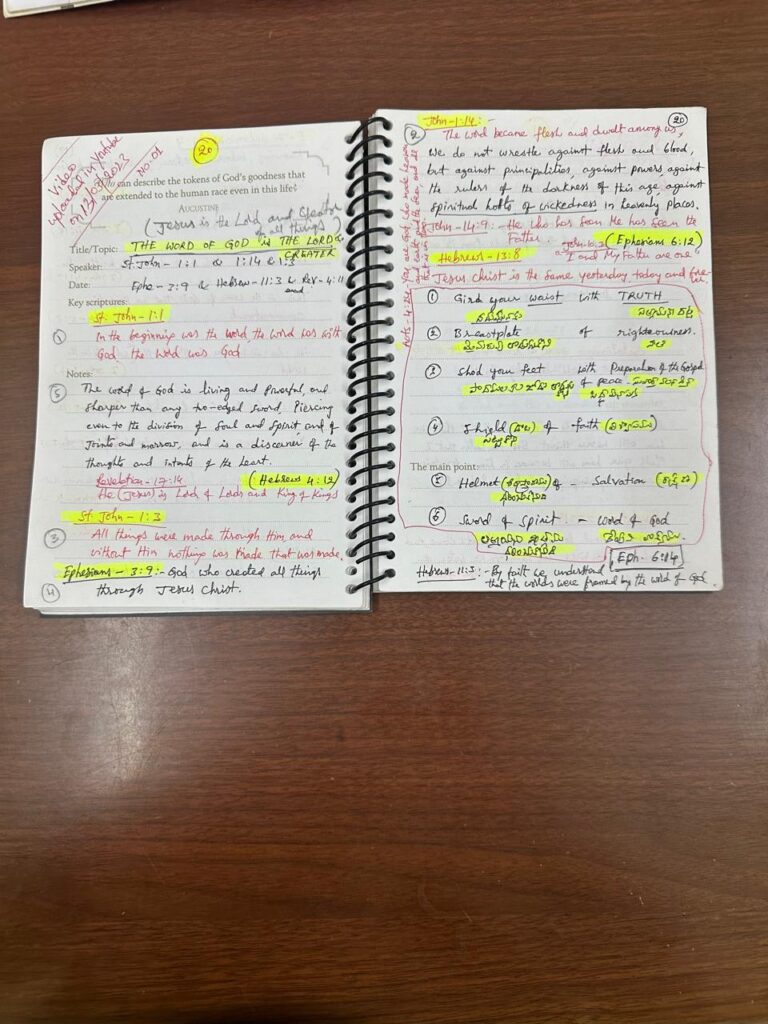 Video
uploaded in YouTube
on 13/03/2023
NO-01
20
Who can describe the tokens of God's goodness that
are extended to the human race even in this life?
AUGUSTINE
(Jesus is the Lord and Creator
of all things)
Title/Topic: THE WORD OF GOD is THE LORD &
CREATER
Speaker: St. John - 1:1 & 1:14 & 1:3
Date: Ephe - 3:9 & Hebrew - 11:3 & Rev - 4:11
Key scriptures:
St. John - 1:1
① In the beginning was the word, the word was with
God the word was God
Notes:
⑤ The word of God is living and powerful, and
sharper than any two-edged sword, Piercing
even to the division of Soul and Spirit, and of
Joints and marrow, and is a discerner of the
thoughts and intents of the heart.
Revelation - 17:14 (Hebrews 4:12)
He (Jesus) is Lord of Lords and King of Kings
St John - 1:3
③ All things were made through Him and
without Him nothing was made that was made.
Ephesians - 3:9:- God who created all things
④ through Jesus Christ.
John-1:14:-
20
② The word became flesh and dwelt among us,
We do not wrestle against flesh and blood,
but against principalities, against powers, against
the rulers of the darkness of this age, against
spiritual hosts of wickedness in heavenly places.
St John - 14:9:- He who has seen Me has seen the
Father. (Ephesians 6:12)
I and My Father are one
Hebrews - 13:8
Jesus Christ is the same yesterday today and forever.
Acts - 4:24- You are God, who made heaven
and earth and the sea, and all
that is in
① Gird your waist with TRUTH
② Breastplate of righteousness.
③ Shod your feet with Preparation of the Gospel
of peace
④ Shield of faith
The main point:
⑤ Helmet of - Salvation
⑥ Sword of Spirit - Word of God
Eph - 6:14
Hebrews-11:3:- By faith we understand
that the worlds were framed by the word of God